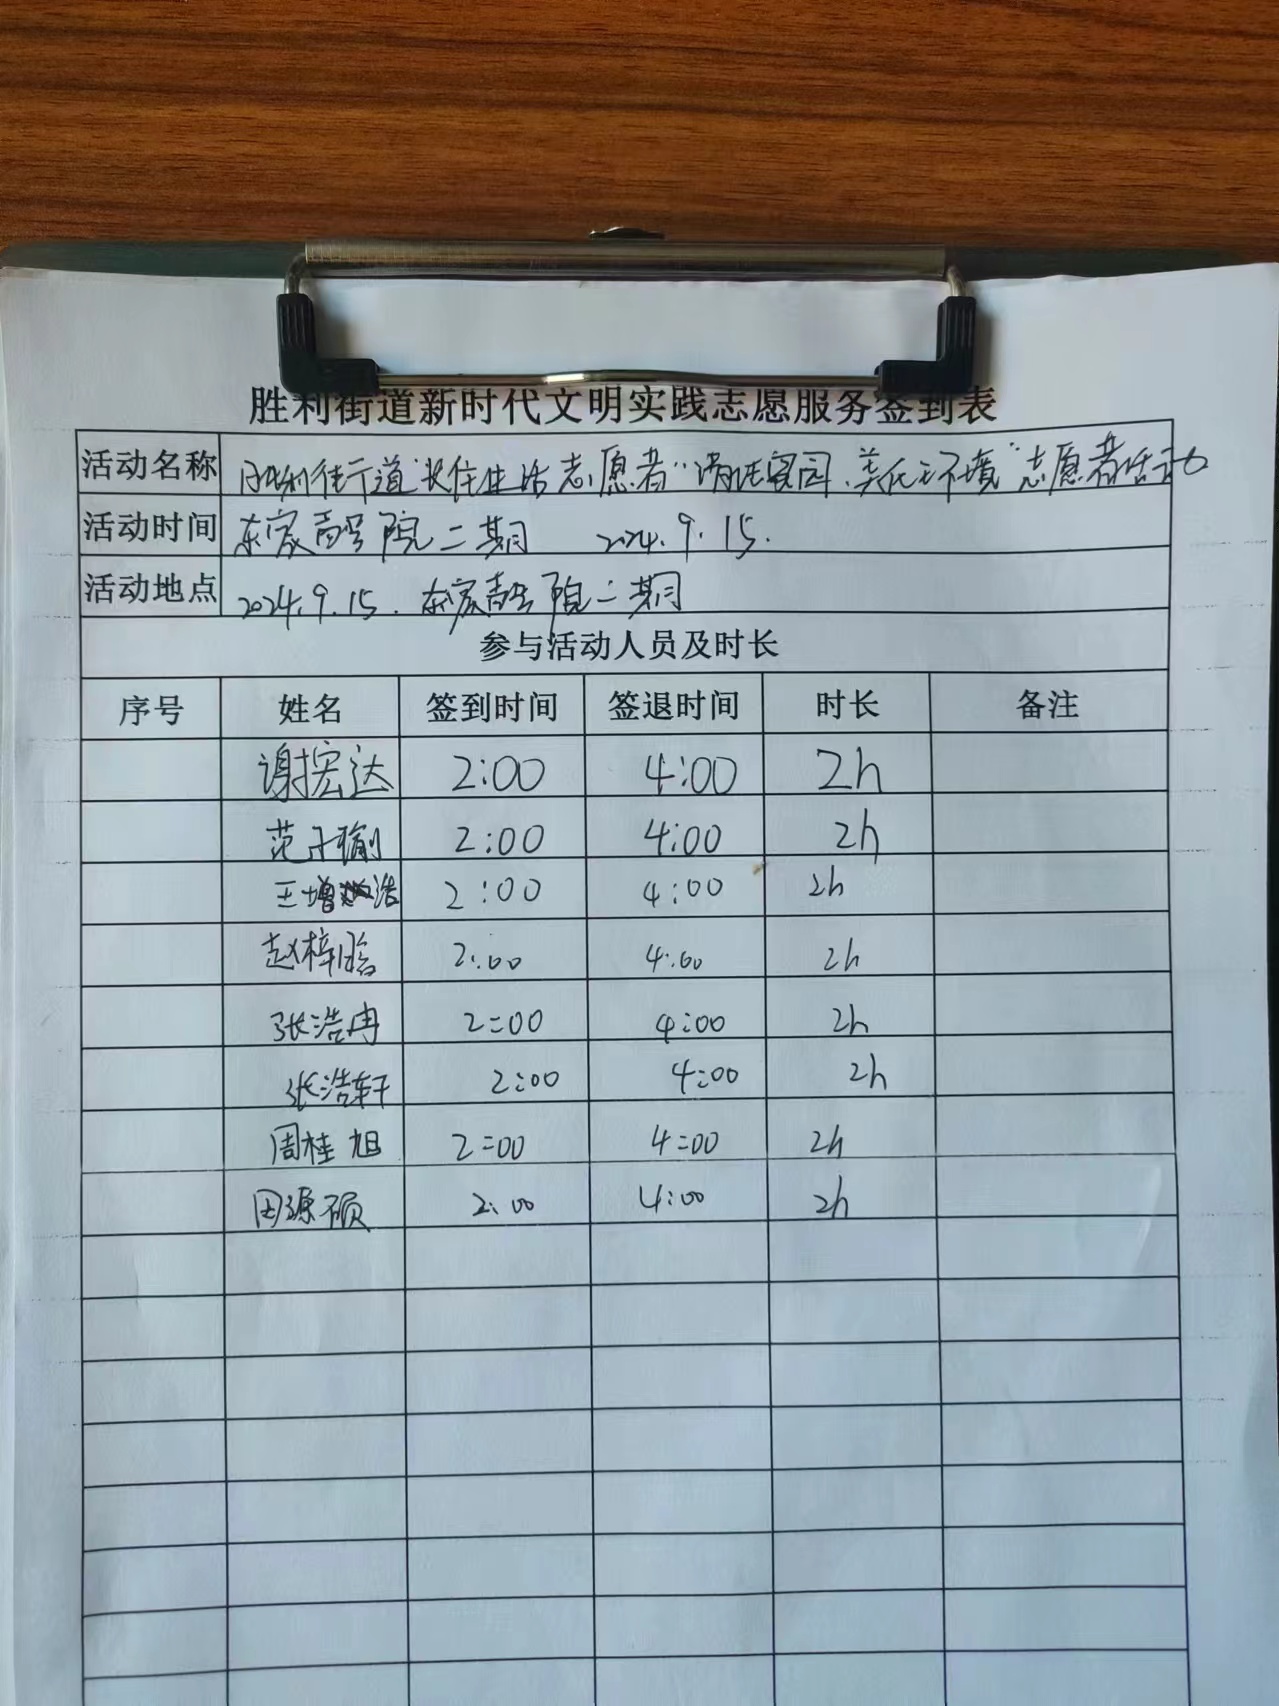 胜利街道新时代文明实践志愿服务签到表
活动名称 胜利街道 志愿者“清洁家园、美化环境”志愿者活动
活动时间 二期 2024.9.15.
活动地点 2024.9.15. 二期
参与活动人员及时长
序号 姓名 签到时间 签退时间 时长 备注
谢宏达 2:00 4:00 2h
范子瑜 2:00 4:00 2h
王增浩 2:00 4:00 2h
赵梓晗 2:00 4:00 2h
张浩冉 2:00 4:00 2h
张浩轩 2:00 4:00 2h
周桂旭 2:00 4:00 2h
田源硕 2:00 4:00 2h